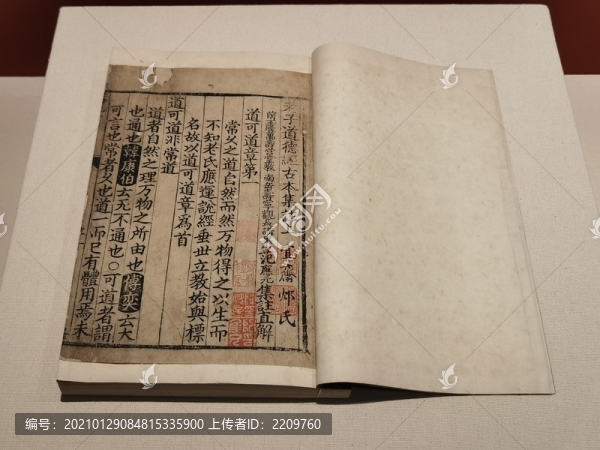 老子道德經古本集註
范應元集註直解
道可道章第一
常久之道自然而然萬物得之以生而
不知老氏應運說經垂世立教始與標
名故以道可道章爲首
道可道非常道
道者自然之理万物之所由也傅奕云大
也通也韓康伯云无不通也○可道者謂
可言也常者久也道一而已有體用焉未
编号：20210129084815335900 上传者ID：2209760